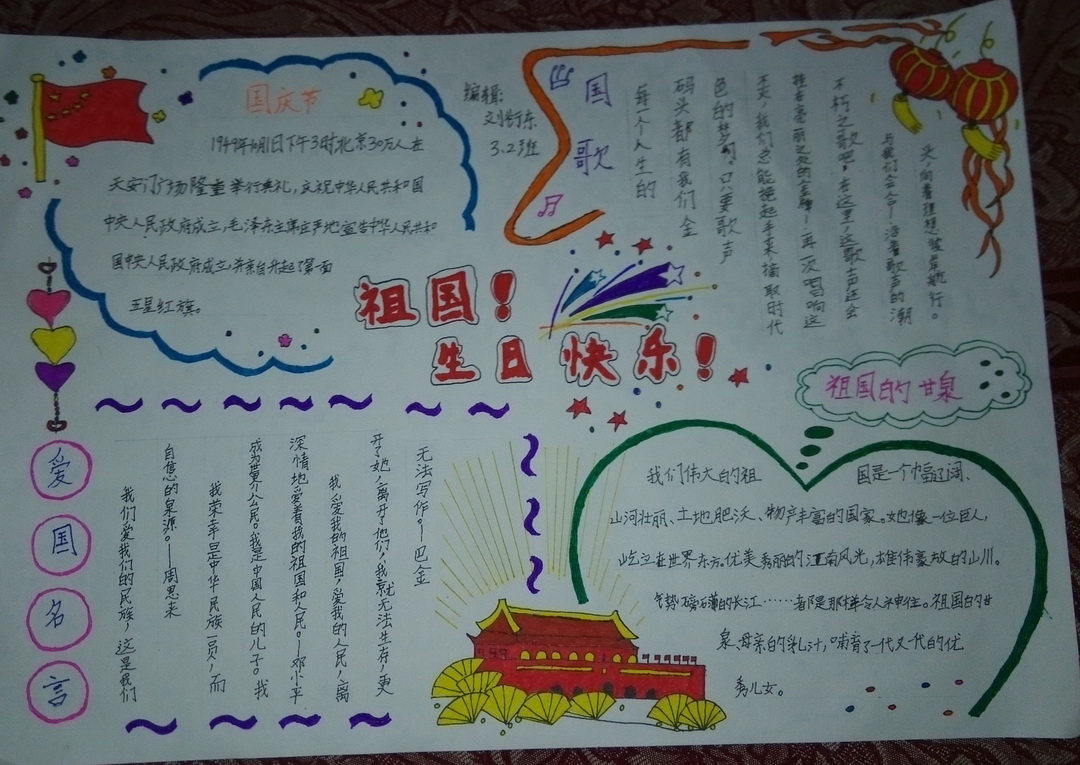 国庆节
1949年10月1日下午3时北京30万人在
天安门广场隆重举行典礼，庆祝中华人民共和国
中央人民政府成立，毛泽东主席庄严地宣告中华人民共和
国中央人民政府成立，并亲自升起了第一面
五星红旗。
编辑：
3.2班
国歌
每一个人生的
码头都有我们金
色的梦，只要歌声
不灭，我们总能挽起手来摘取时代
挂在亮丽之处的金融！再一次唱响这
不朽之歌吧，在这里，这歌声还会
与我们会合！沿着歌声的潮
头向着理想驶去航行。
祖国！
生日快乐！
爱国名言
我们爱我们的民族，这是我们
自信的泉源。——周恩来
我荣幸是中华民族一员，而
成为世界公民。我是中国人民的儿子。我
深情地爱着我的祖国和人民。——邓小平
我爱我的祖国，爱我的人民，离
开了她，离开了他们，我就无法生存，更
无法写作。——巴金
祖国的甘泉
我们伟大的祖国是一个幅辽阔、
山河壮丽、土地肥沃、物产丰富的国家。她像一位巨人，
屹立在世界东方。优美秀丽的江南风光，雄伟豪放的山川。
气势磅礴的长江……都是那样令人神往。祖国的甘
泉、母亲的乳汁，哺育了一代又一代的优
秀儿女。